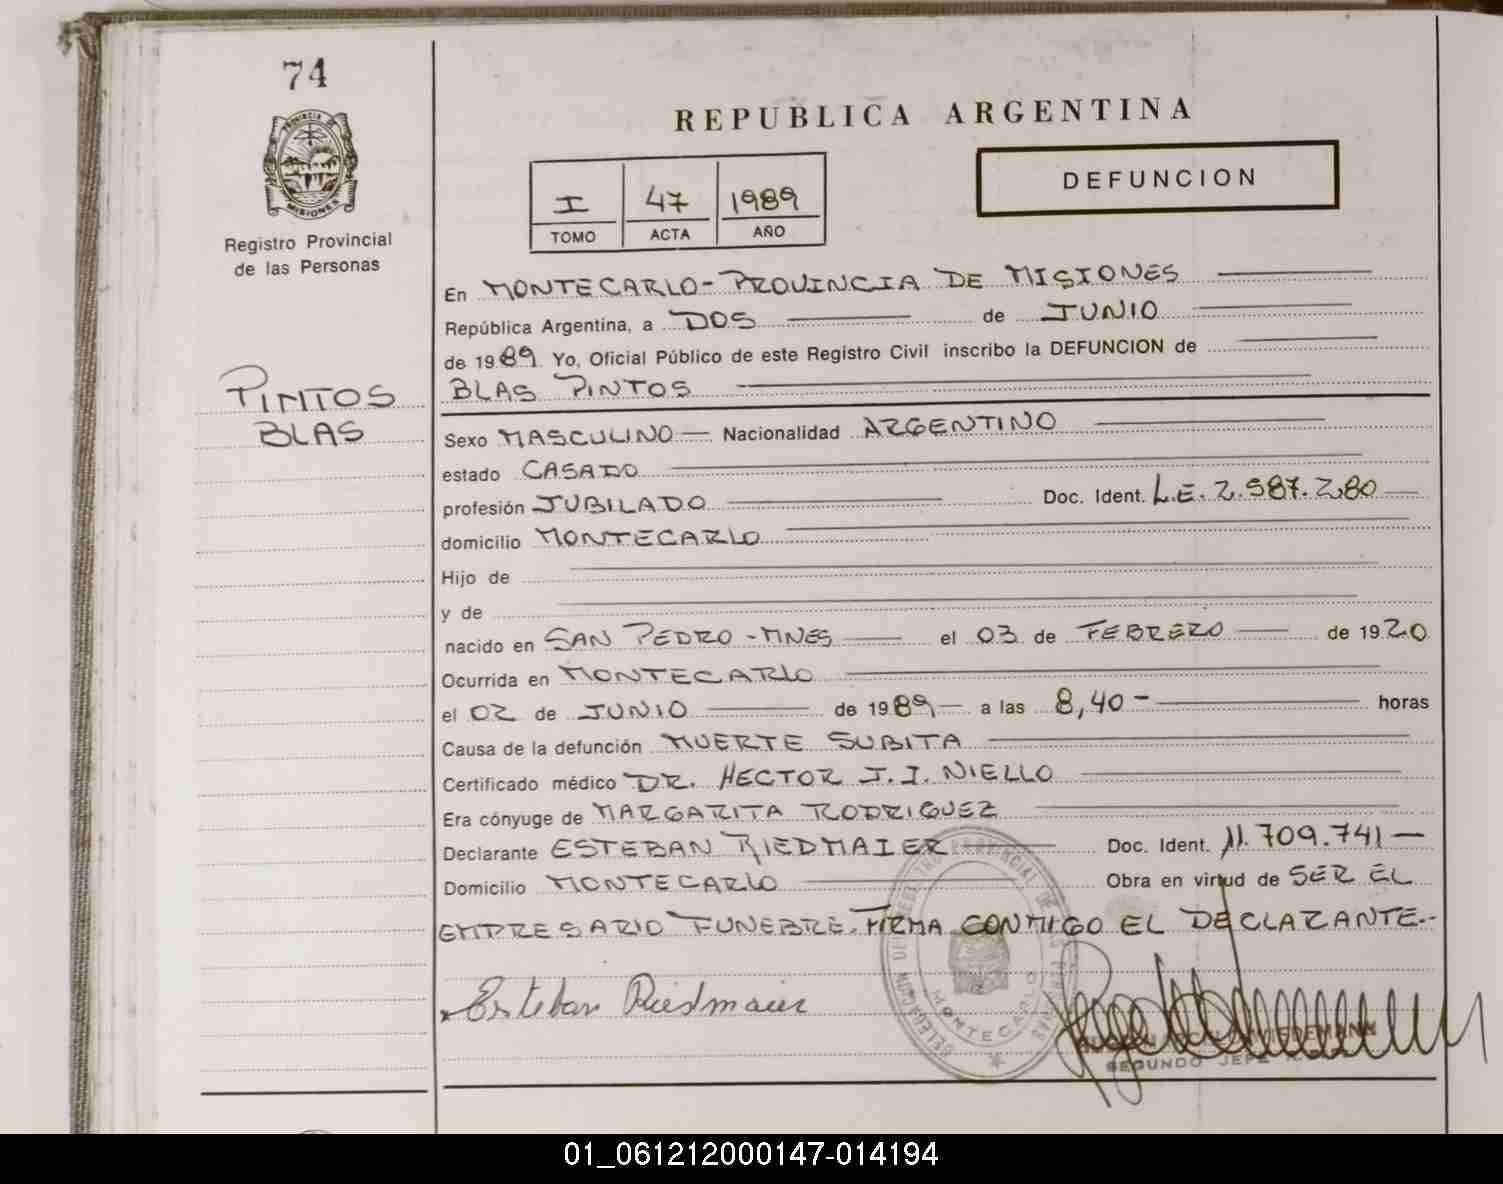 74
PROVINCIA DE
MISIONES
Registro Provincial
de las Personas
PINTOS
BLAS
REPUBLICA ARGENTINA
I 47 1989
TOMO ACTA AÑO
DEFUNCION
En MONTECARLO - PROVINCIA DE MISIONES
República Argentina, a DOS de JUNIO
de 1989. Yo, Oficial Público de este Registro Civil inscribo la DEFUNCION de
BLAS PINTOS
Sexo MASCULINO Nacionalidad ARGENTINO
estado CASADO
profesión JUBILADO Doc. Ident. L.E. 2.587.280
domicilio MONTECARLO
Hijo de
y de
nacido en SAN PEDRO - MNES el 03 de FEBRERO de 1920
Ocurrida en MONTECARLO
el 02 de JUNIO de 1989 a las 8,40 - horas
Causa de la defunción MUERTE SUBITA
Certificado médico DR. HECTOR J. I. NIELLO
Era cónyuge de MARGARITA RODRIGUEZ
Declarante ESTEBAN RIEDMAIER Doc. Ident. 11.709.741
Domicilio MONTECARLO Obra en virtud de SER EL
EMPRESARIO FUNEBRE. FIRMA CONMIGO EL DECLARANTE.-
Esteban Riedmaier
MONTECARLO
SEGUNDO JEFE
01_061212000147-014194